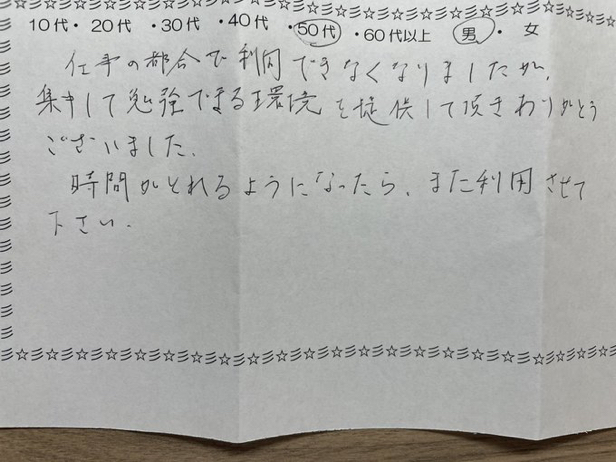 10代・20代・30代・40代・50代・60代以上 男・女
仕事の都合で利用できなくなりましたが、
集中して勉強できる環境を提供して頂きありがとう
ございました。
時間がとれるようになったら、また利用させて
下さい.